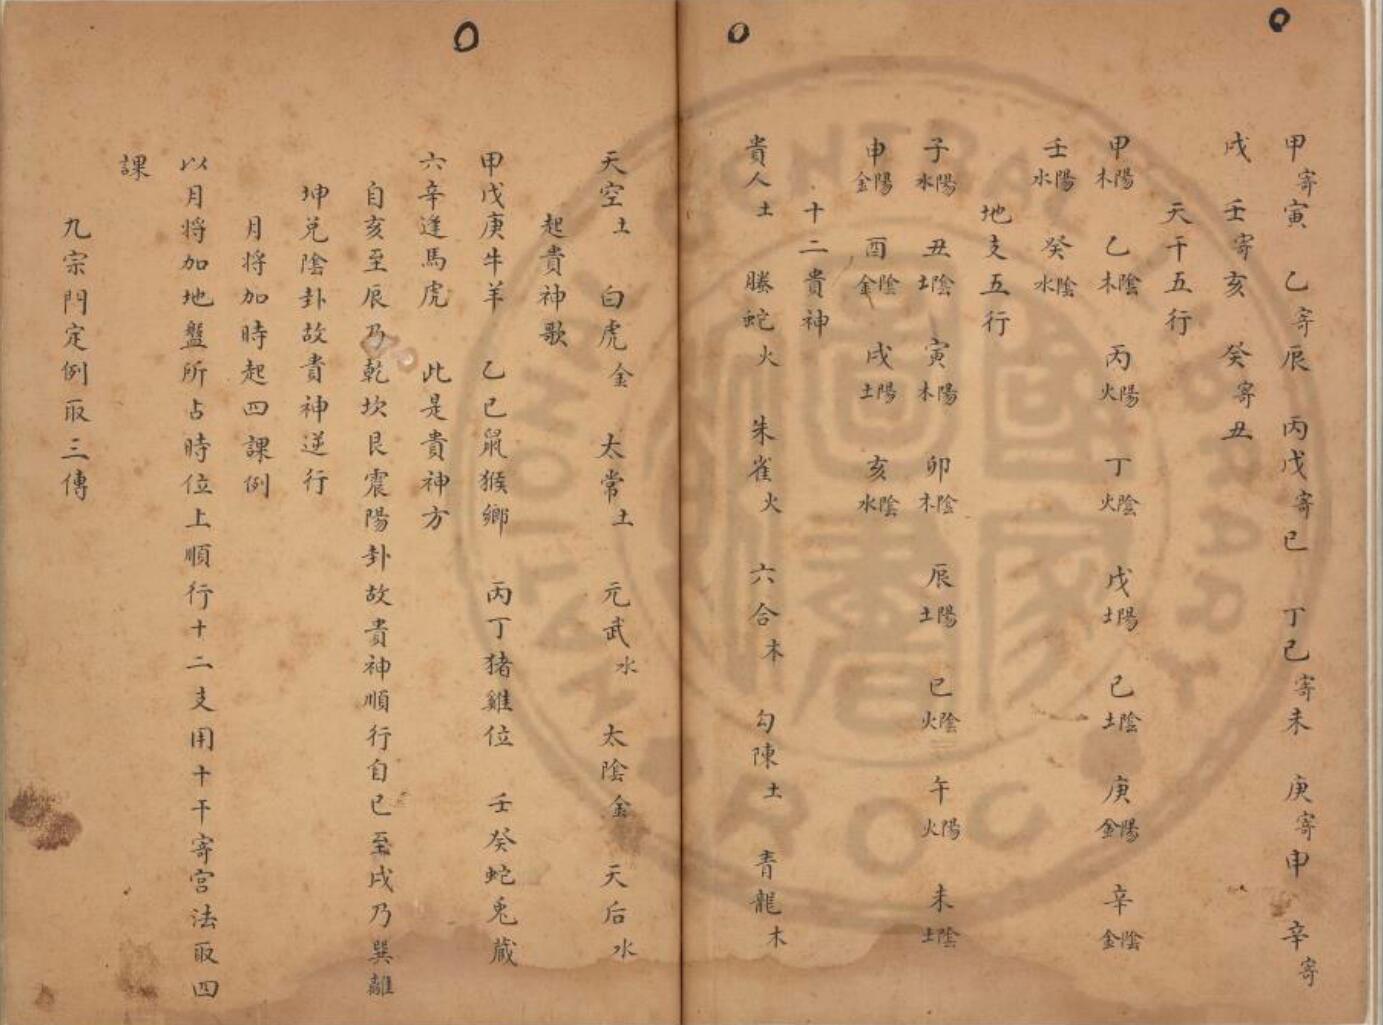 甲寄寅 乙寄辰 丙戊寄巳 丁己寄未 庚寄申 辛寄
戌 壬寄亥 癸寄丑
天干五行
甲陽木 乙陰木 丙陽火 丁陰火 戊陽土 己陰土 庚陽金 辛陰金
壬陽水 癸陰水
地支五行
子陽水 丑陰土 寅陽木 卯陰木 辰陽土 巳陰火 午陽火 未陰土
申陽金 酉陰金 戌陽土 亥陰水
十二貴神
貴人土 螣蛇火 朱雀火 六合木 勾陳土 青龍木
天空土 白虎金 太常土 元武水 太陰金 天后水
起貴神歌
甲戊庚牛羊 乙己鼠猴鄉 丙丁猪雞位 壬癸蛇兎藏
六辛逢馬虎 此是貴神方
自亥至辰乃乾坎艮震陽卦故貴神順行自巳至戌乃巽離
坤兌陰卦故貴神逆行
月將加時起四課例
以月将加地盤所占時位上順行十二支用十干寄宮法取四
課
九宗門定例取三傳
國家圖書館
NATIONAL CENTRAL LIBRARY R.O.C.